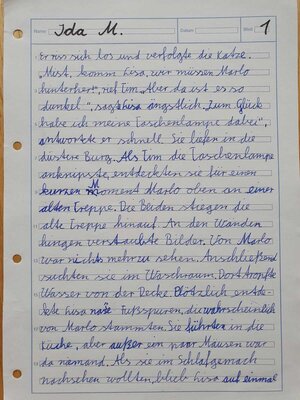 Name: Ida M. Datum: Blatt: 1
Er riss sich los und verfolgte die Katze.
"Mist, komm Lisa, wir müssen Marlo
hinterher", rief Tim. Aber da ist es so
dunkel", sagte Lisa ängstlich. Zum Glück
habe ich meine Taschenlampe dabei",
antwortete er schnell. Sie liefen in die
düstere Burg. Als Tim die Taschenlampe
anknipste, entdeckten sie für einen
kurzen Moment Marlo oben an einer
alten Treppe. Die Beiden stiegen die
alte Treppe hinauf. An den Wänden
hingen verstaubte Bilder. Von Marlo
war nichts mehr zu sehen. Anschließend
suchten sie im Waschraum. Dort tropfte
Wasser von der Decke. Plötzlich entde-
ckte Lisa nase Fußspuren, die wahrscheinlich
von Marlo stammten. Sie führten in die
Küche, aber außer ein paar Mäusen war
da niemand. Als sie im Schlafgemach
nachsehen wollten, blieb Lisa auf einmal